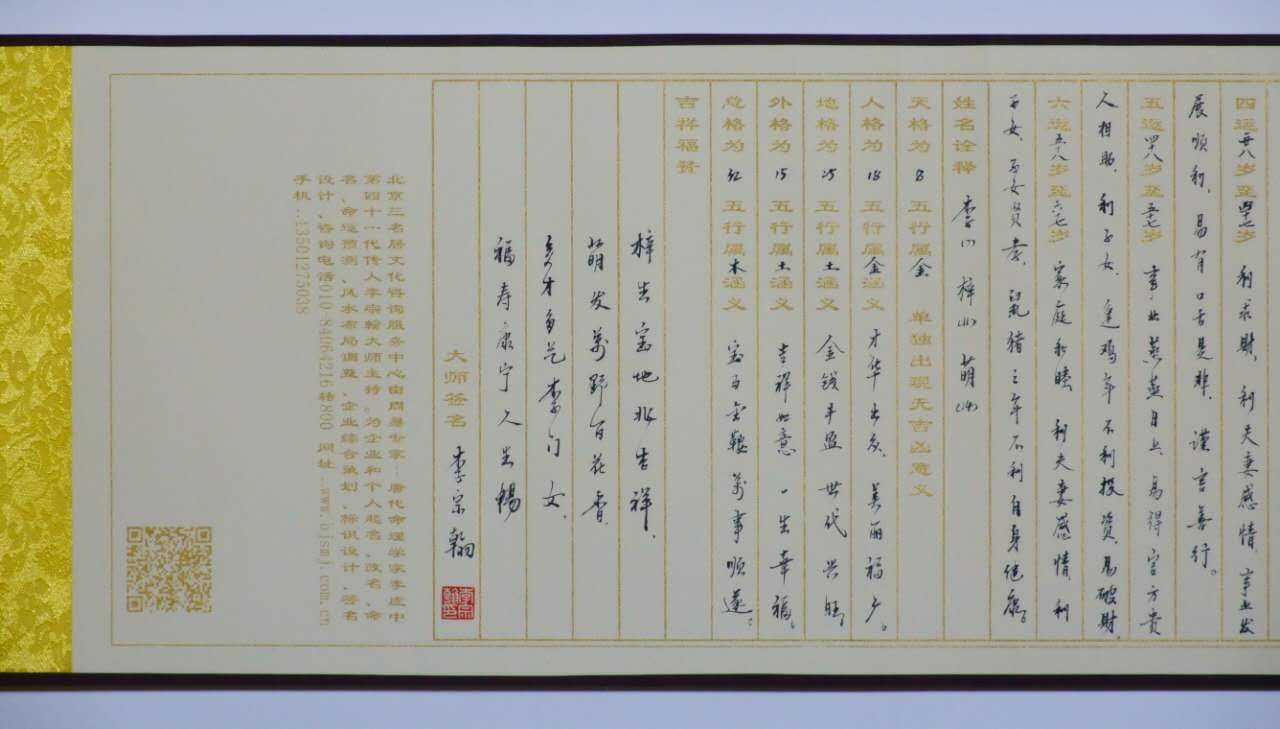 四运卅八岁至四十七岁 利求财，利夫妻感情，事业发
展顺利，易有口舌是非，谨言善行。
五运四十八岁至五十七岁 事业蒸蒸日上，易得官方贵
人相助，利子女，逢鸡年不利投资，易破财。
六运五十八岁至六十七岁 家庭和睦，利夫妻感情，利
子女，子女贤孝，鼠猪之年不利自身健康。
姓名诠释 李(7) 梓(11) 萌(14)
天格为 8 五行属金 单独出现无吉凶意义
人格为 18 五行属金涵义 才华出众，美丽福广。
地格为 25 五行属土涵义 金钱丰盈 世代兴旺
外格为 15 五行属土涵义 吉祥如意 一生幸福。
总格为 32 五行属木涵义 宝马金鞍 万事顺遂。
吉祥福赞
梓生宝地兆吉祥，
萌发万野百花香，
多才多艺李门女，
福寿康宁人生畅
大师签名 李宗翰
李宗翰印
北京三名居文化咨询服务中心由周易专家--唐代命理学家李虚中
第四十一代传人李宗翰大师主持。为企业和个人起名、改名、命
名、命运预测、风水布局调整、企业综合策划、标识设计、签名
设计、咨询电话010-84064216转800 网址:www.bjsmj.com.cn
手机:13501275038